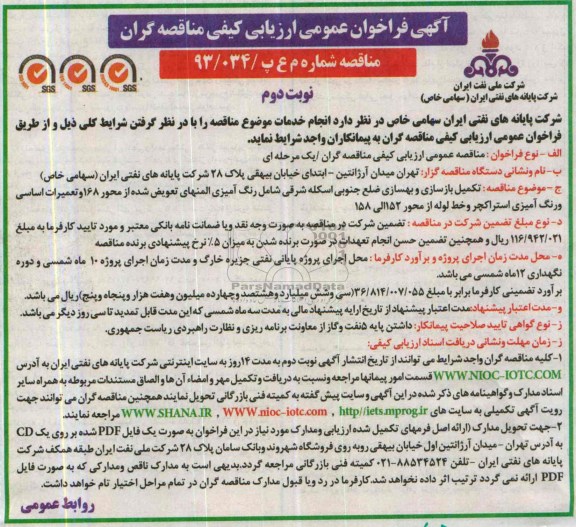 آگهی فراخوان عمومی ارزیابی کیفی مناقصه گران
مناقصه شماره م ع پ / ۹۳/۰۳۴
نوبت دوم
شرکت ملی نفت ایران
شرکت پایانه های نفتی ایران (سهامی خاص)
SGS SGS SGS
شرکت پایانه های نفتی ایران سهامی خاص در نظر دارد انجام خدمات موضوع مناقصه را با در نظر گرفتن شرایط کلی ذیل و از طریق
فراخوان عمومی ارزیابی کیفی مناقصه گران به پیمانکاران واجد شرایط نماید.
الف - نوع فراخوان : مناقصه عمومی ارزیابی کیفی مناقصه گران / یک مرحله ای
ب- نام ونشانی دستگاه مناقصه گزار: تهران میدان آرژانتین - ابتدای خیابان بیهقی پلاک ۲۸ شرکت پایانه های نفتی ایران (سهامی خاص)
ج - موضوع مناقصه : تکمیل بازسازی و بهسازی ضلع جنوبی اسکله شرقی شامل رنگ آمیزی المنهای تعویض شده از محور ۱۶۸ وتعمیرات اساسی
ورنگ آمیزی استراکچر و خط لوله از محور ۱۵۲ الی ۱۵۸
د- نوع مبلغ تضمین شرکت در مناقصه : تضمین شرکت در مناقصه به صورت وجه نقد ویا ضمانت نامه بانکی معتبر و مورد تایید کارفرما به مبلغ
۱۱۶/۹۴۲/۰۲۱ ریال و همچنین تضمین حسن انجام تعهدات در صورت برنده شدن به میزان ۵٪ نرخ پیشنهادی برنده مناقصه
ه- محل مدت زمان اجرای پروژه و برآورد کارفرما : محل اجرای پروژه پایانی نفتی جزیره خارگ و مدت زمان اجرای پروژه ۱۰ ماه شمسی و دوره
نگهداری ۱۲ماه شمسی می باشد.
برآورد تضمینی کارفرما برابر با مبلغ ۳۶/۸۱۴/۰۰۷/۰۵۵(سی وشش میلیارد وهشتصد وچهارده میلیون وهفت هزار وپنجاه وپنج)ریال می باشد.
و-مدت اعتبار پیشنهاد:مدت اعتبار پیشنهاد از تاریخ ارایه پیشنهاد مالی به مدت سه ماه شمسی که این مدت قابل تمدید تا سی روز دیگر می باشد.
ز- نوع گواهی تایید صلاحیت پیمانکار: داشتن پایه ۵نفت وگاز از معاونت برنامه ریزی و نظارت راهبردی ریاست جمهوری.
ز- زمان مهلت ونشانی دریافت اسناد ارزیابی کیفی:
۱-کلیه مناقصه گران واجد شرایط می توانند از تاریخ انتشار آگهی نوبت دوم به مدت ۱۴ روز به سایت اینترنتی شرکت پایانه های نفتی ایران به آدرس
WWW.NIOC-IOTC.COM قسمت امور پیمانها مراجعه ونسبت به دریافت و تکمیل مهر و امضاء آن ها و الصاق مستندات مربوطه به همراه سایر
اسناد مدارک و گواهینامه های ذکر شده در این آگهی و سایت پیش گفته به کمیته فنی بازرگانی تحویل نمایند همچنین مناقصه گران می توانند جهت
رویت آگهی تکمیلی به سایت های WWW.SHANA.IR , WWW.nioc-iotc.com , http//iets.mprog.ir مراجعه نمایند.
۲-جهت تحویل مدارک (ارائه اصل فرمهای تکمیل شده ارزیابی ومدارک مورد نیاز در این فراخوان به صورت یک فایل PDF شده بر روی یک CD
به آدرس تهران - میدان آرژانتین اول خیابان بیهقی روبه روی فروشگاه شهروند وبانک سامان پلاک ۲۸ شرکت ملی نفت ایران طبقه همکف شرکت
پایانه های نفتی ایران -تلفن ۸۸۵۳۴۵۲۴-۰۲۱ کمیته فنی بازرگانی مراجعه گردد.بدیهی است به مدارک ناقص ومدارکی که به صورت فایل
PDF ارائه نمی گردد ترتیب اثر داده نخواهد شد.کارفرما در رد ویا قبول مدارک مناقصه گران در تمام مراحل اختیار تام خواهد داشت.
روابط عمومی
ParsNamadData